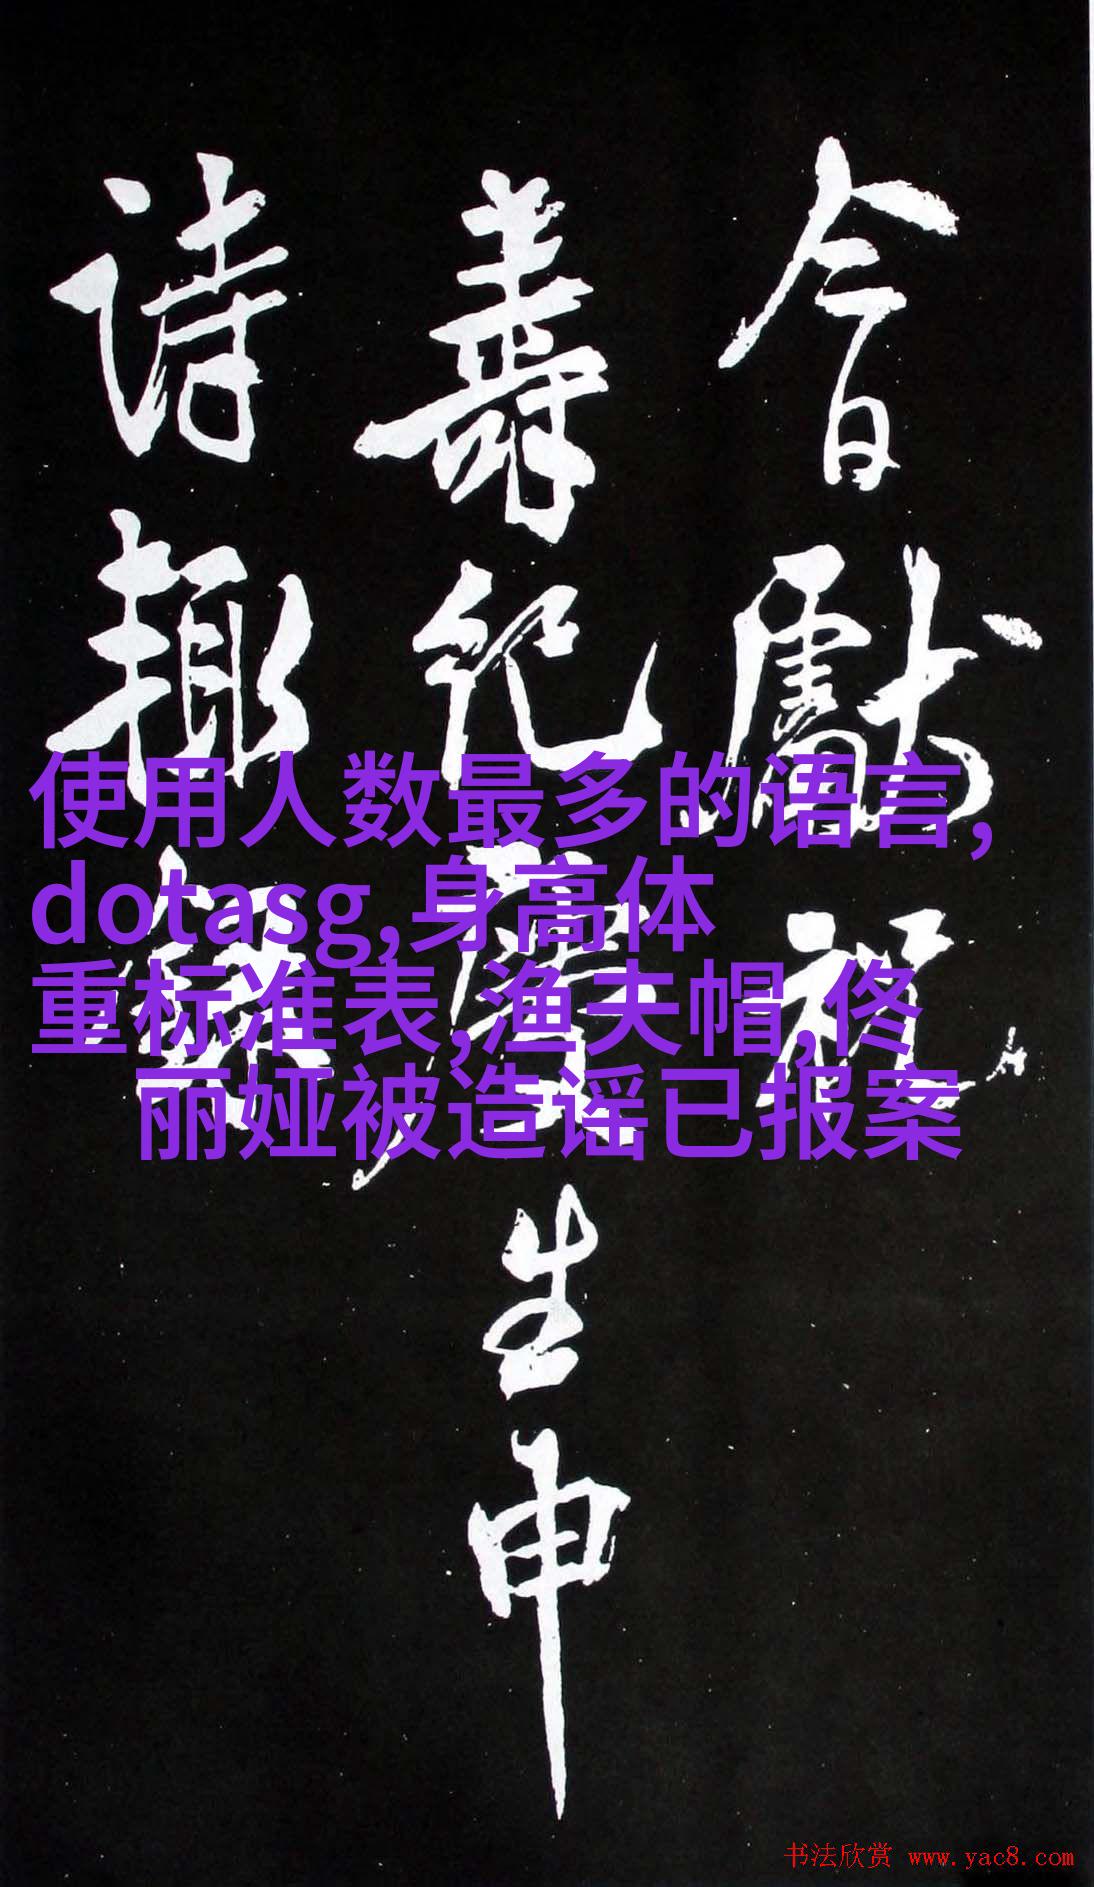 今日獻祝
壽紀生申
詩趣
使用人数最多的语言,
dotasg,身高体
重标准表,渔夫帽,佟
丽娅被造谣已报案
书法欣赏 www.yac8.com